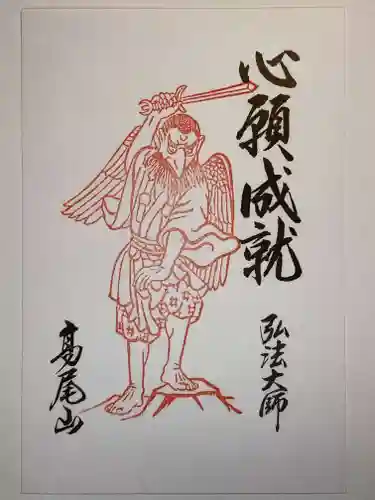 心願成就
弘法大師
高尾山